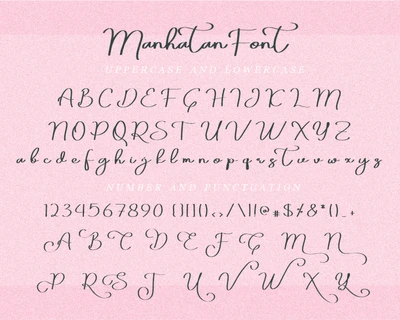 Manhatan Font
UPPERCASE AND LOWERCASE
ABCDEFGHIJKLM
NOPQRSTUVWXYZ
abcdefghijklmnopqrstuvwxyz
NUMBER AND PUNCTUATION
1234567890 {}[]()‹›/\||@#$%&*()_+
A B C D E F G M N
P R S T U V W X Y